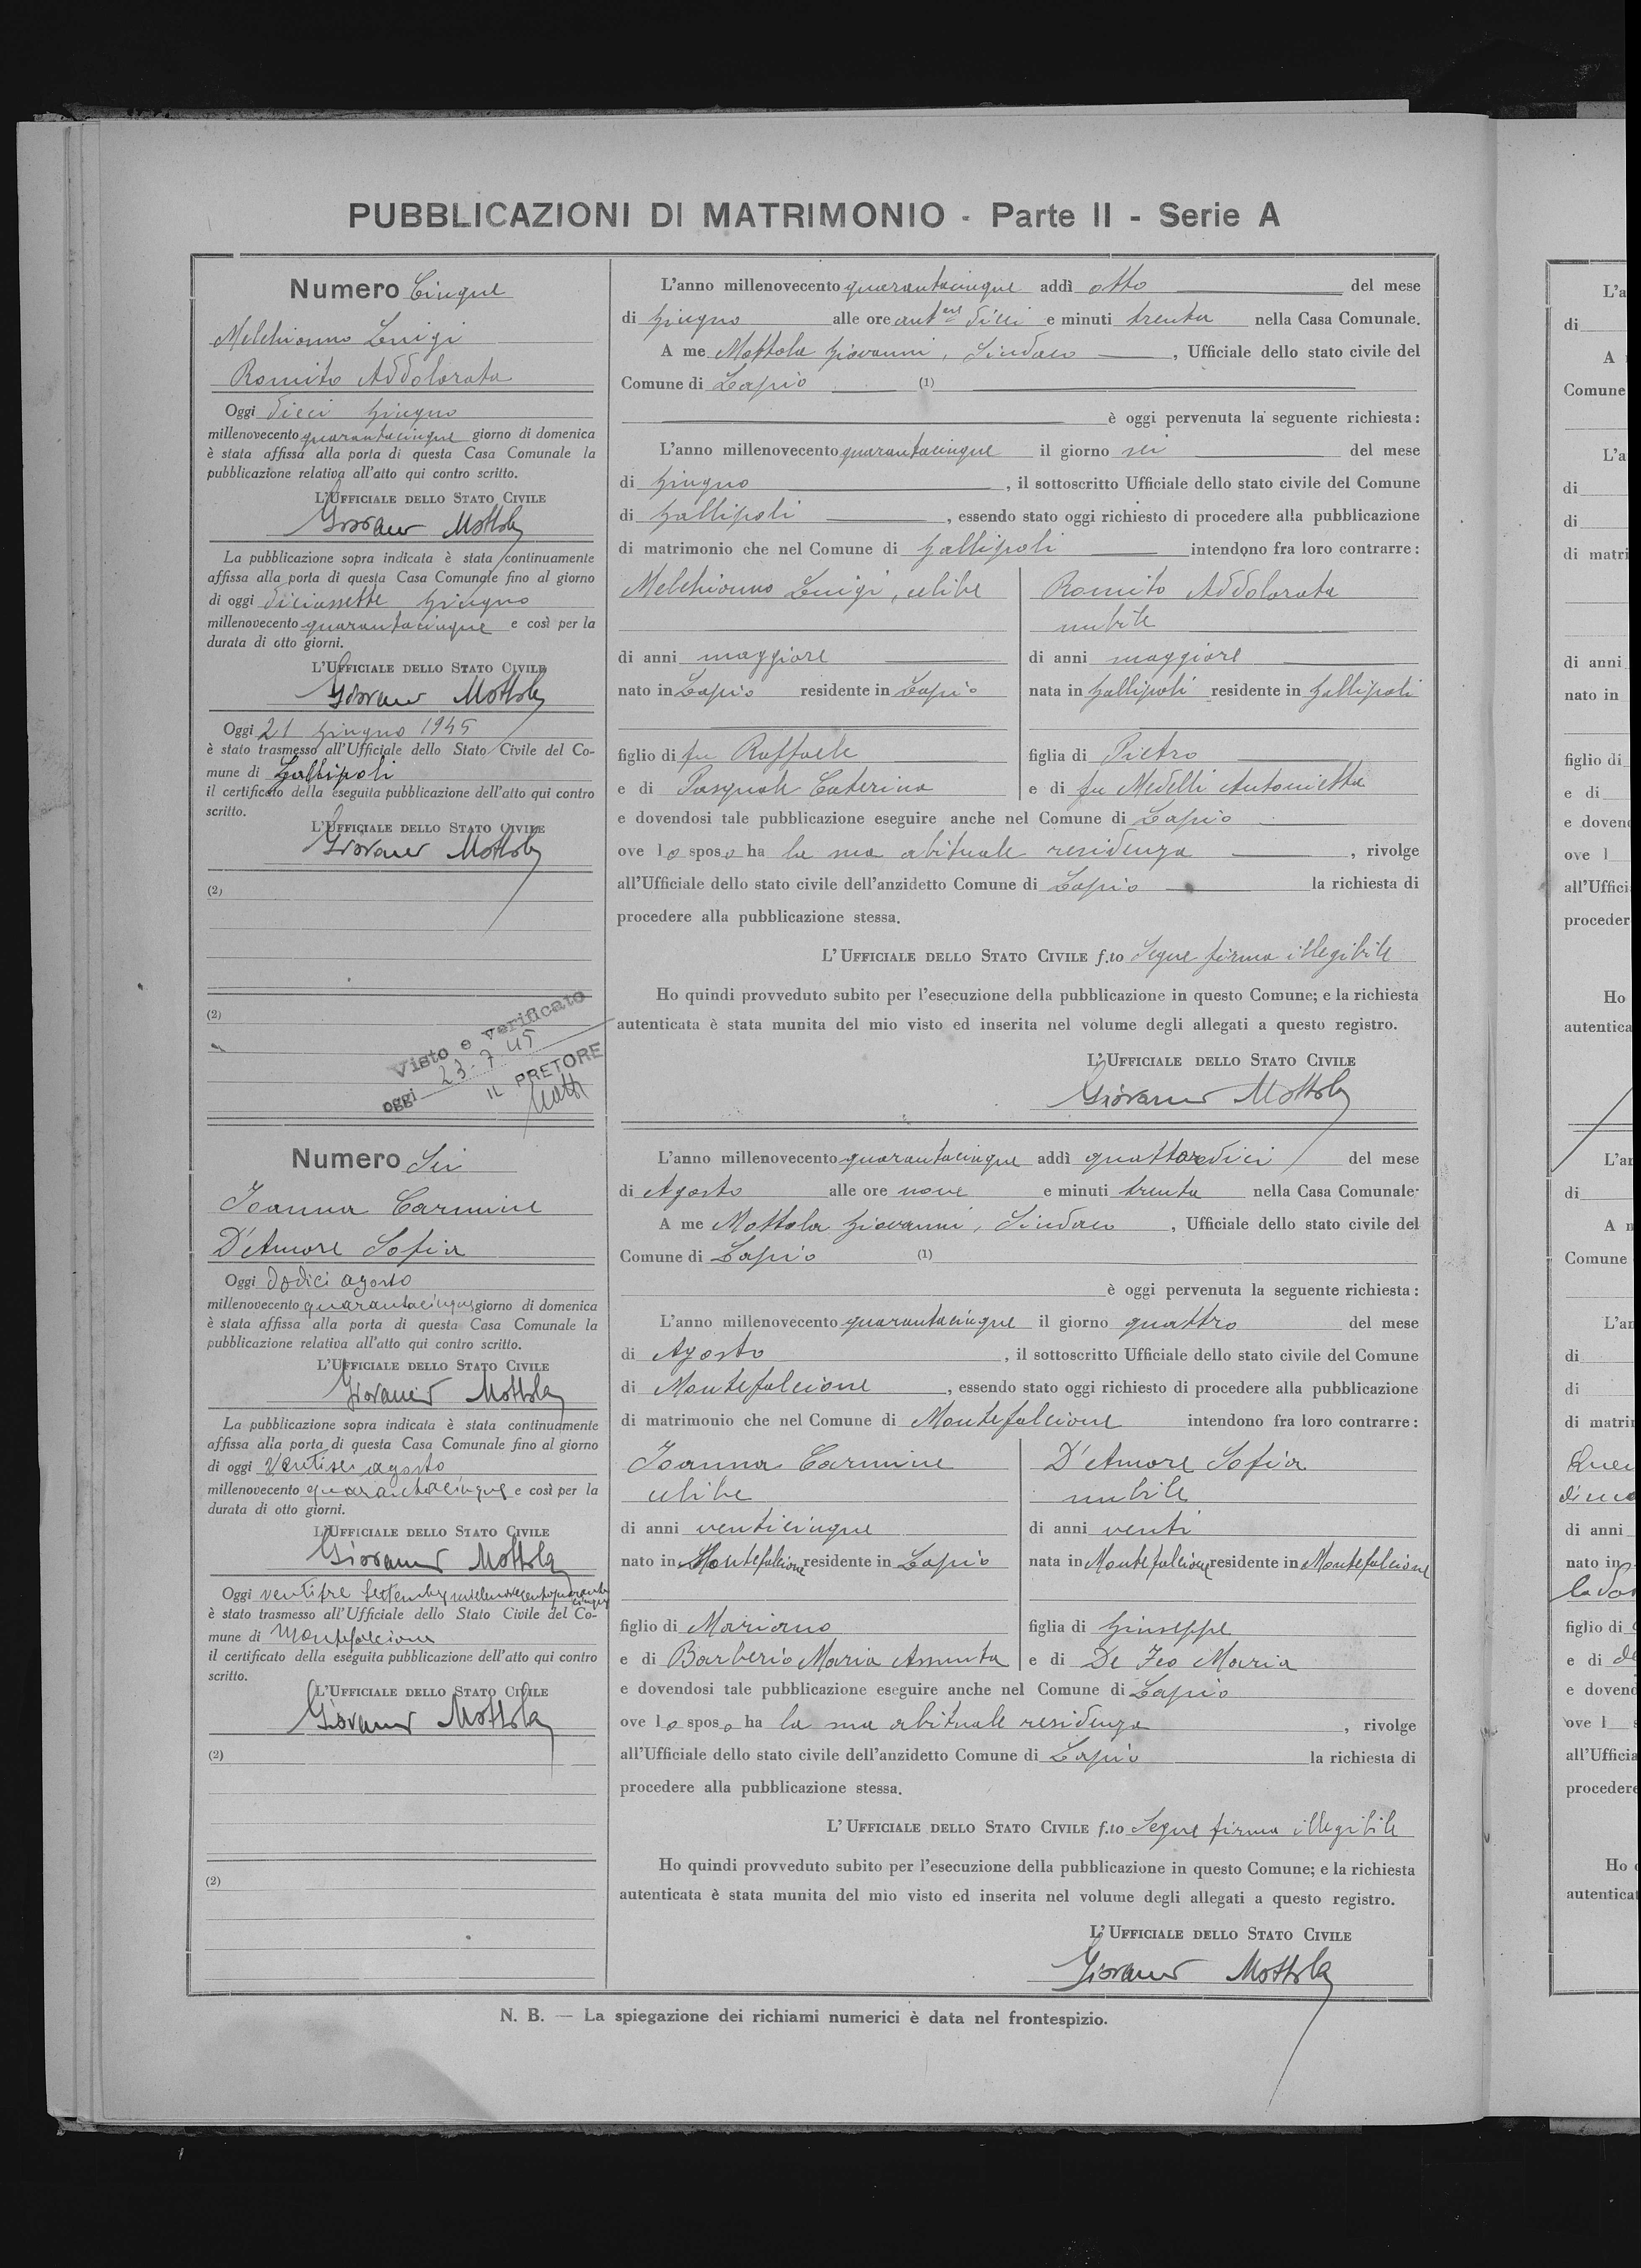 PUBBLICAZIONI DI MATRIMONIO - Parte II - Serie A
Numero Cinque
Melchionno Luigi
Romito Addolorata
Oggi dieci giugno
millenovecento quarantacinque giorno di domenica
è stata affissa alla porta di questa Casa Comunale la
pubblicazione relativa all'atto qui contro scritto.
L'UFFICIALE DELLO STATO CIVILE
Giovanni Mottola
La pubblicazione sopra indicata è stata continuamente
affissa alla porta di questa Casa Comunale fino al giorno
di oggi diciassette giugno
millenovecento quarantacinque e così per la
durata di otto giorni.
L'UFFICIALE DELLO STATO CIVILE
Giovanni Mottola
Oggi 21 giugno 1945
è stato trasmesso all'Ufficiale dello Stato Civile del Co-
mune di Gallipoli
il certificato della eseguita pubblicazione dell'atto qui contro
scritto.
L'UFFICIALE DELLO STATO CIVILE
Giovanni Mottola
(2)
(2)
Visto e verificato
oggi 23-7-45
IL PRETORE
L'anno millenovecento quarantacinque addì otto del mese
di giugno alle ore ant. dieci e minuti trenta nella Casa Comunale.
A me Mottola Giovanni, Sindaco, Ufficiale dello stato civile del
Comune di Lapio (1)
è oggi pervenuta la seguente richiesta:
L'anno millenovecento quarantacinque il giorno sei del mese
di giugno, il sottoscritto Ufficiale dello stato civile del Comune
di Gallipoli, essendo stato oggi richiesto di procedere alla pubblicazione
di matrimonio che nel Comune di Gallipoli intendono fra loro contrarre:
Melchionno Luigi, celibe
di anni maggiore
nato in Lapio residente in Lapio
figlio di fu Raffaele
e di Pasquale Caterina
Romito Addolorata
nubile
di anni maggiore
nata in Gallipoli residente in Gallipoli
figlia di Pietro
e di fu Medelli Antonietta
e dovendosi tale pubblicazione eseguire anche nel Comune di Lapio
ove lo sposo ha la sua abituale residenza, rivolge
all'Ufficiale dello stato civile dell'anzidetto Comune di Lapio la richiesta di
procedere alla pubblicazione stessa.
L'UFFICIALE DELLO STATO CIVILE f.to Segue firma illegibile
Ho quindi provveduto subito per l'esecuzione della pubblicazione in questo Comune; e la richiesta
autenticata è stata munita del mio visto ed inserita nel volume degli allegati a questo registro.
L'UFFICIALE DELLO STATO CIVILE
Giovanni Mottola
Numero Sei
Ioanna Carmine
D'Amore Sofia
Oggi dodici agosto
millenovecento quarantacinque giorno di domenica
è stata affissa alla porta di questa Casa Comunale la
pubblicazione relativa all'atto qui contro scritto.
L'UFFICIALE DELLO STATO CIVILE
Giovanni Mottola
La pubblicazione sopra indicata è stata continuamente
affissa alla porta di questa Casa Comunale fino al giorno
di oggi Ventisei agosto
millenovecento quarantacinque e così per la
durata di otto giorni.
L'UFFICIALE DELLO STATO CIVILE
Giovanni Mottola
Oggi ventitre settembre millenovecentoquaranta
cinque
è stato trasmesso all'Ufficiale dello Stato Civile del Co-
mune di Montefalcione
il certificato della eseguita pubblicazione dell'atto qui contro
scritto.
L'UFFICIALE DELLO STATO CIVILE
Giovanni Mottola
(2)
(2)
L'anno millenovecento quarantacinque addì quattordici del mese
di Agosto alle ore nove e minuti trenta nella Casa Comunale.
A me Mottola Giovanni, Sindaco, Ufficiale dello stato civile del
Comune di Lapio (1)
è oggi pervenuta la seguente richiesta:
L'anno millenovecento quarantacinque il giorno quattro del mese
di Agosto, il sottoscritto Ufficiale dello stato civile del Comune
di Montefalcione, essendo stato oggi richiesto di procedere alla pubblicazione
di matrimonio che nel Comune di Montefalcione intendono fra loro contrarre:
Ioanna Carmine
celibe
di anni venticinque
nato in Montefalcione residente in Lapio
figlio di Mariano
e di Barberio Maria Assunta
D'Amore Sofia
nubile
di anni venti
nata in Montefalcione residente in Montefalcione
figlia di Giuseppe
e di De Feo Maria
e dovendosi tale pubblicazione eseguire anche nel Comune di Lapio
ove lo sposo ha la sua abituale residenza, rivolge
all'Ufficiale dello stato civile dell'anzidetto Comune di Lapio la richiesta di
procedere alla pubblicazione stessa.
L'UFFICIALE DELLO STATO CIVILE f.to Segue firma illegibile
Ho quindi provveduto subito per l'esecuzione della pubblicazione in questo Comune; e la richiesta
autenticata è stata munita del mio visto ed inserita nel volume degli allegati a questo registro.
L'UFFICIALE DELLO STATO CIVILE
Giovanni Mottola
N. B. — La spiegazione dei richiami numerici è data nel frontespizio.